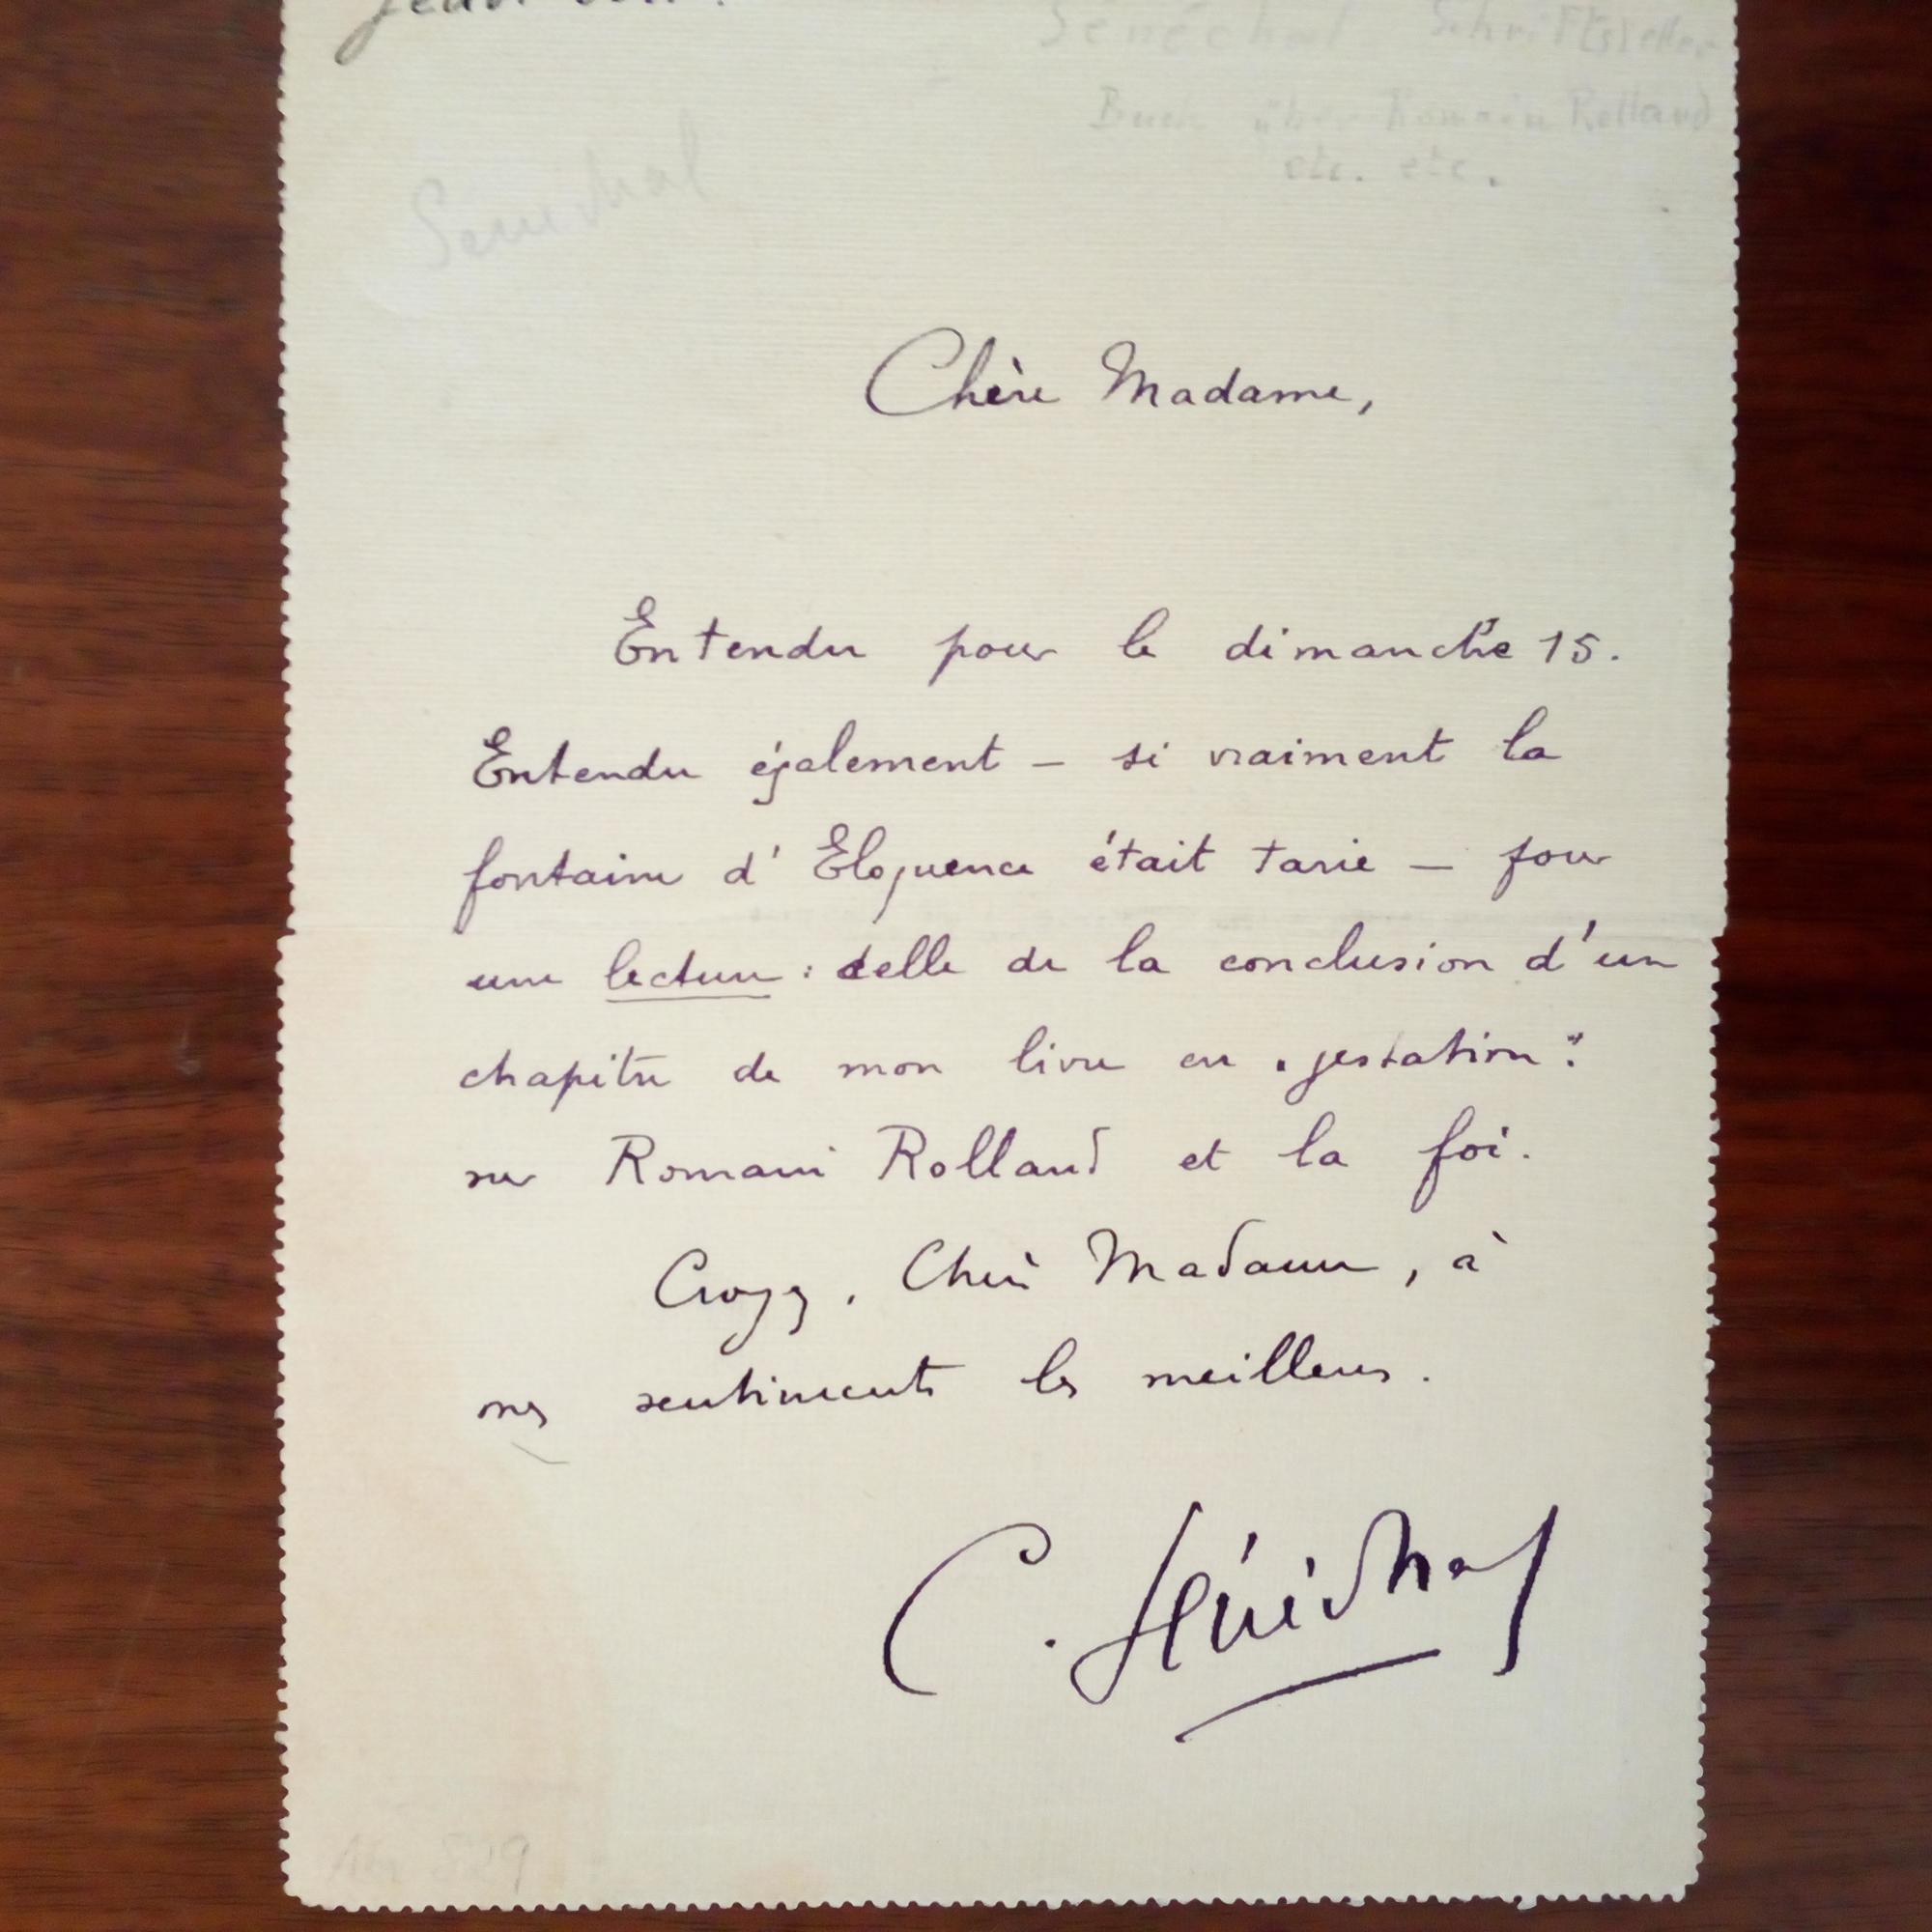 Sénéchal Schriftsteller
Buch über Romain Rolland
etc. etc.
Sénéchal
Chère Madame,
Entendu pour le dimanche 15.
Entendu également – si vraiment la
fontaine d'Eloquence était tarie – pour
une lecture : celle de la conclusion d'un
chapitre de mon livre en "gestation":
sur Romain Rolland et la foi.
Croyez, Chère Madame, à
mes sentiments les meilleurs.
C. Sénéchal
829